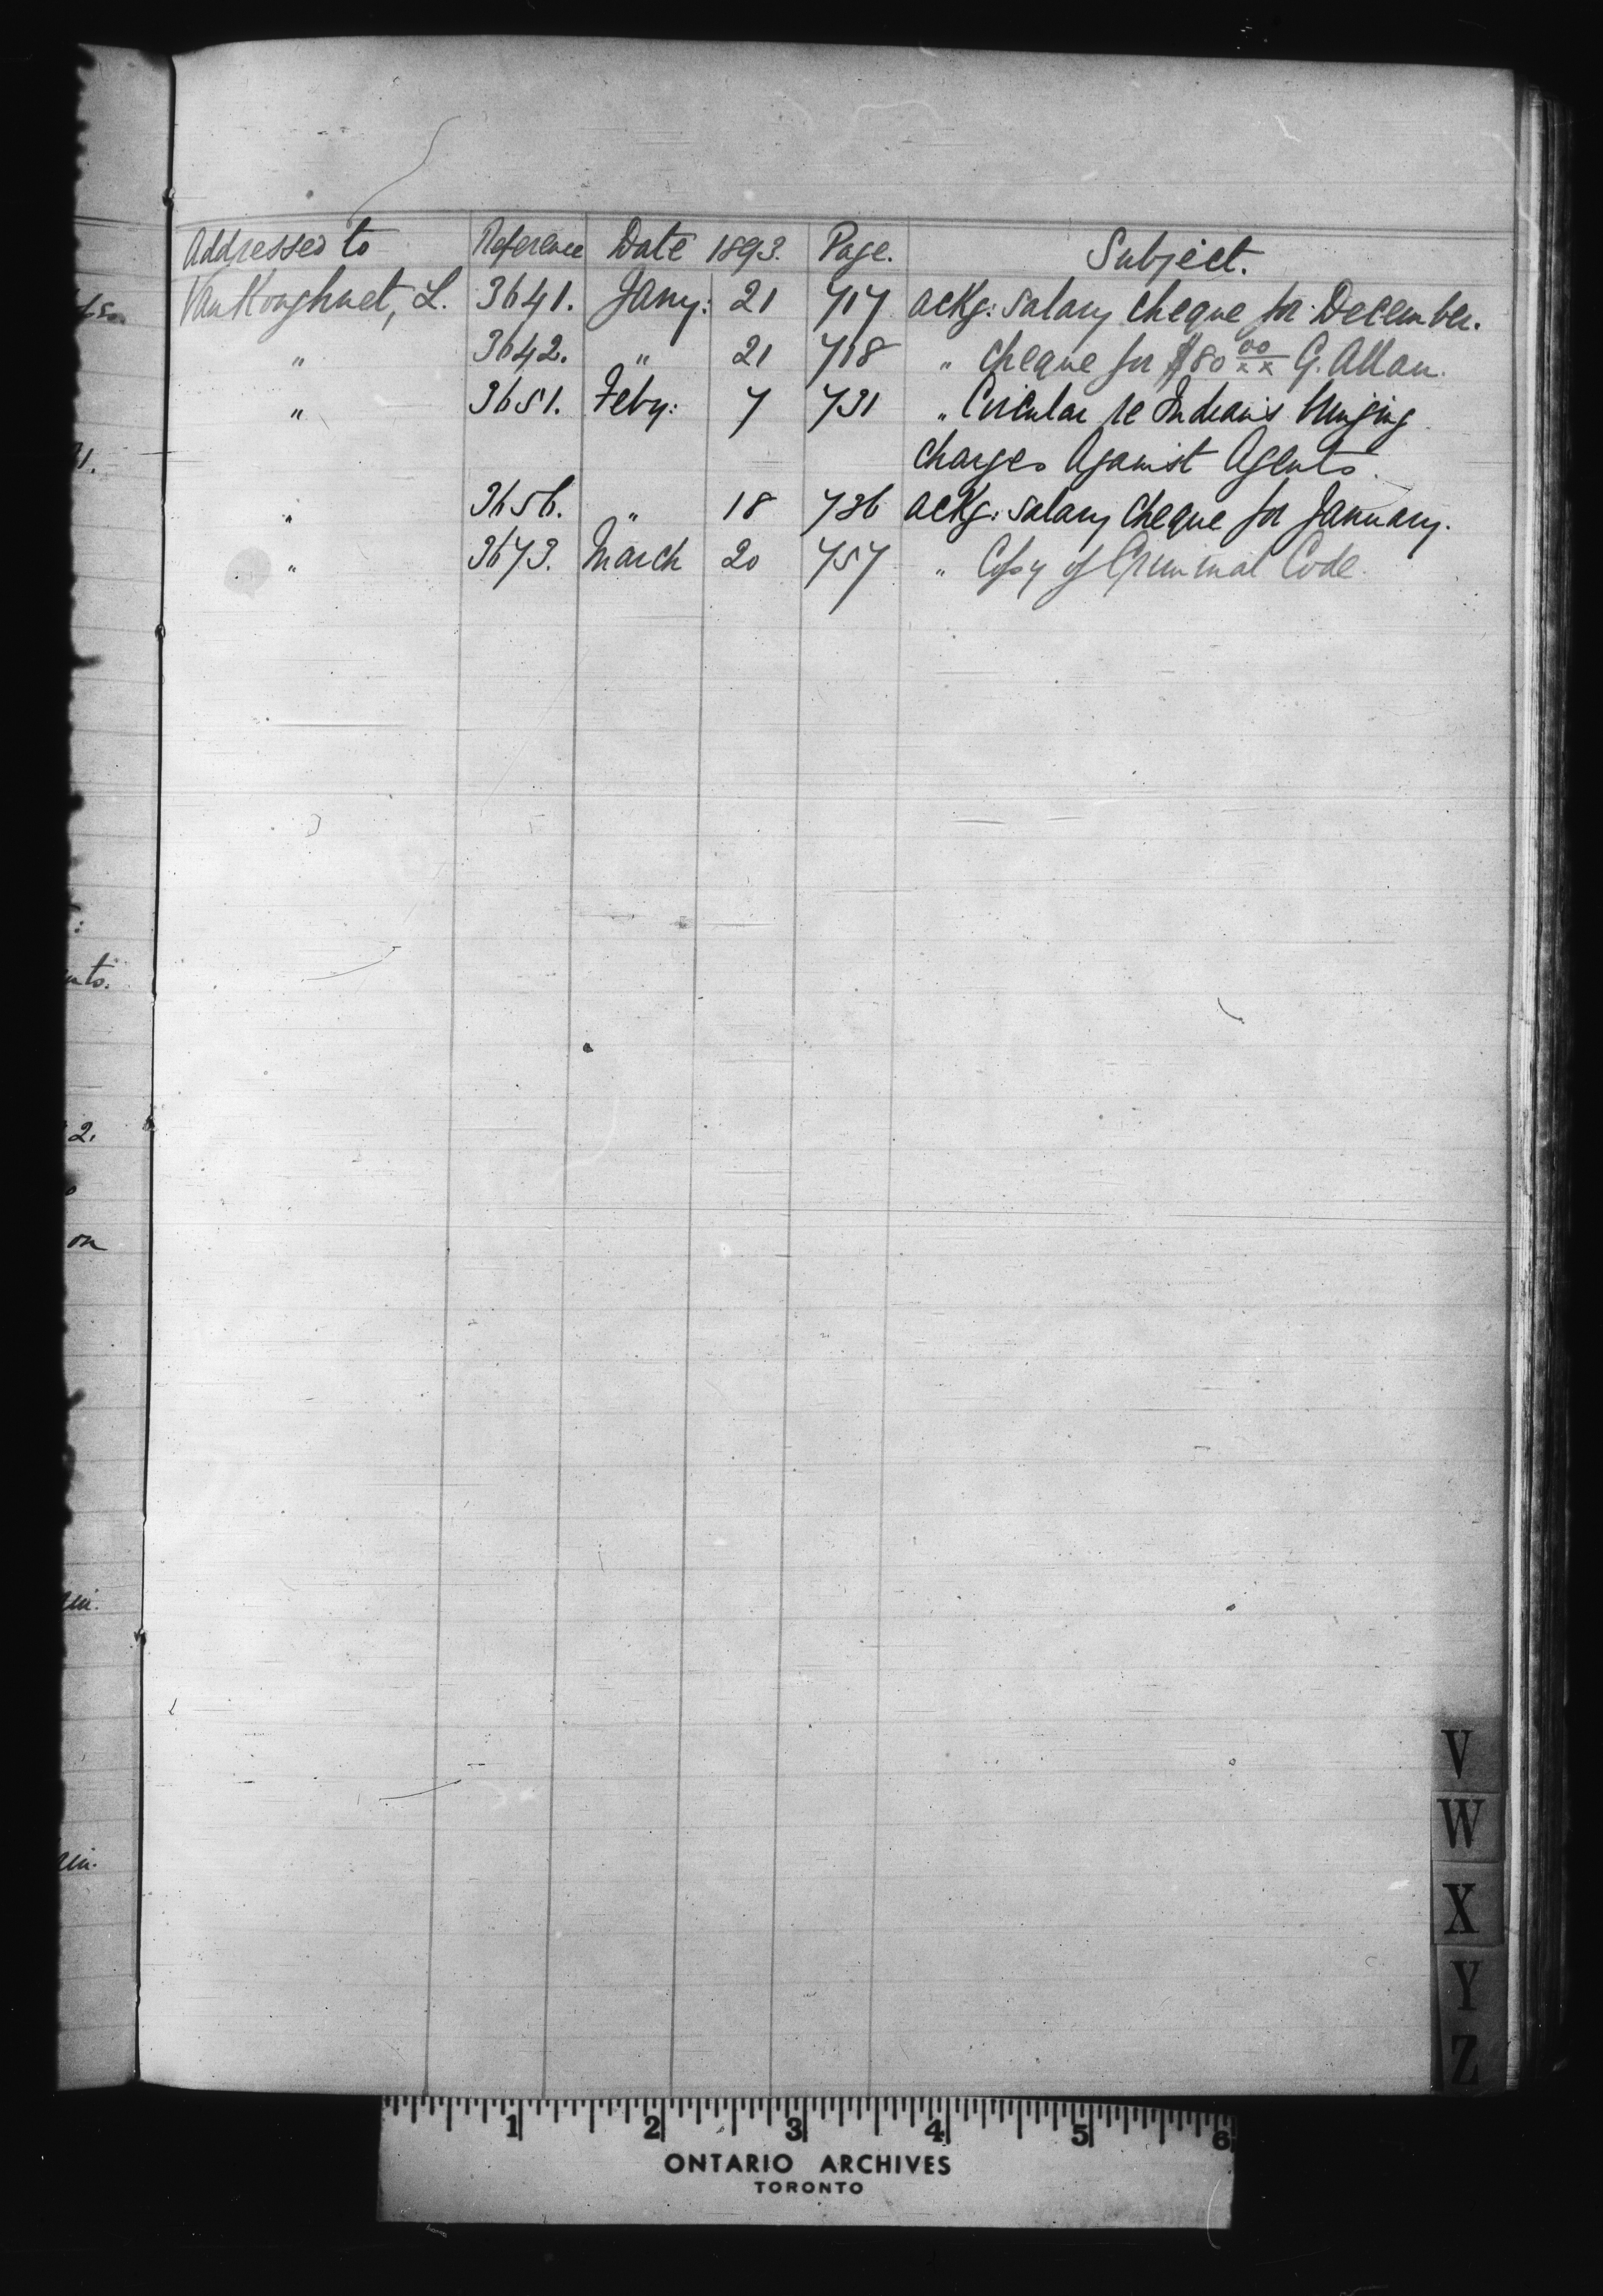 Addressed to Reference Date 1893. Page. Subject.
VanKoughnet, L. 3641. Jany: 21 717 ackg: salary cheque for December.
" 3642. " 21 718 " cheque for $80 00/xx G. Allan.
" 3651. Feby: 7 731 " Circular re Indians bringing
charges against Agents.
" 3656. " 18 736 ackg: salary cheque for January.
" 3673. March 20 757 " Copy of Criminal Code.
nts.
2.
on
V
W
X
Y
Z
1 2 3 4 5 6
ONTARIO ARCHIVES
TORONTO